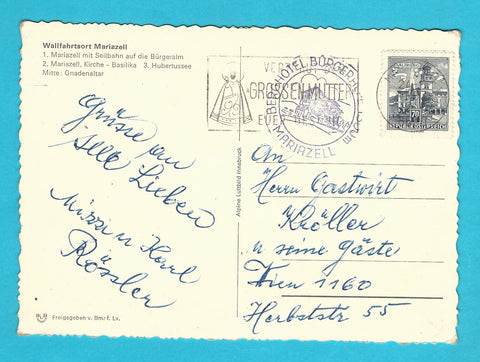 Wallfahrtsort Mariazell
1. Mariazell mit Seilbahn auf die Bürgeralm
2. Mariazell, Kirche - Basilika   3. Hubertussee
Mitte: Gnadenaltar
GROSSEN MUTTER
BERGHOTEL BÜRGERALPE
MARIAZELL
70
REPUBLIK ÖSTERREICH
Grüsse an
alle Lieben
Mizzi u Karl
Rössler
Alpine Luftbild Innsbruck
An
Herrn Gastwirt
Kröller
u seine Gäste
Wien 1160
Herbststr 55
Freigegeben v. Bmf f. Lv.